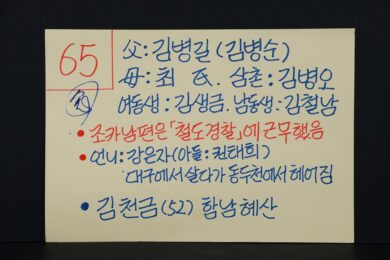 65
父:김병길(김병순)
母:최 氏. 삼촌:김병오
여동생:김생금. 남동생-김철남
• 조카남편은「철도경찰」에 근무했음
• 언니:강은자(아들:권태희)
대구에서 살다가 동두천에서 헤어짐
• 김천금(52) 함남혜산